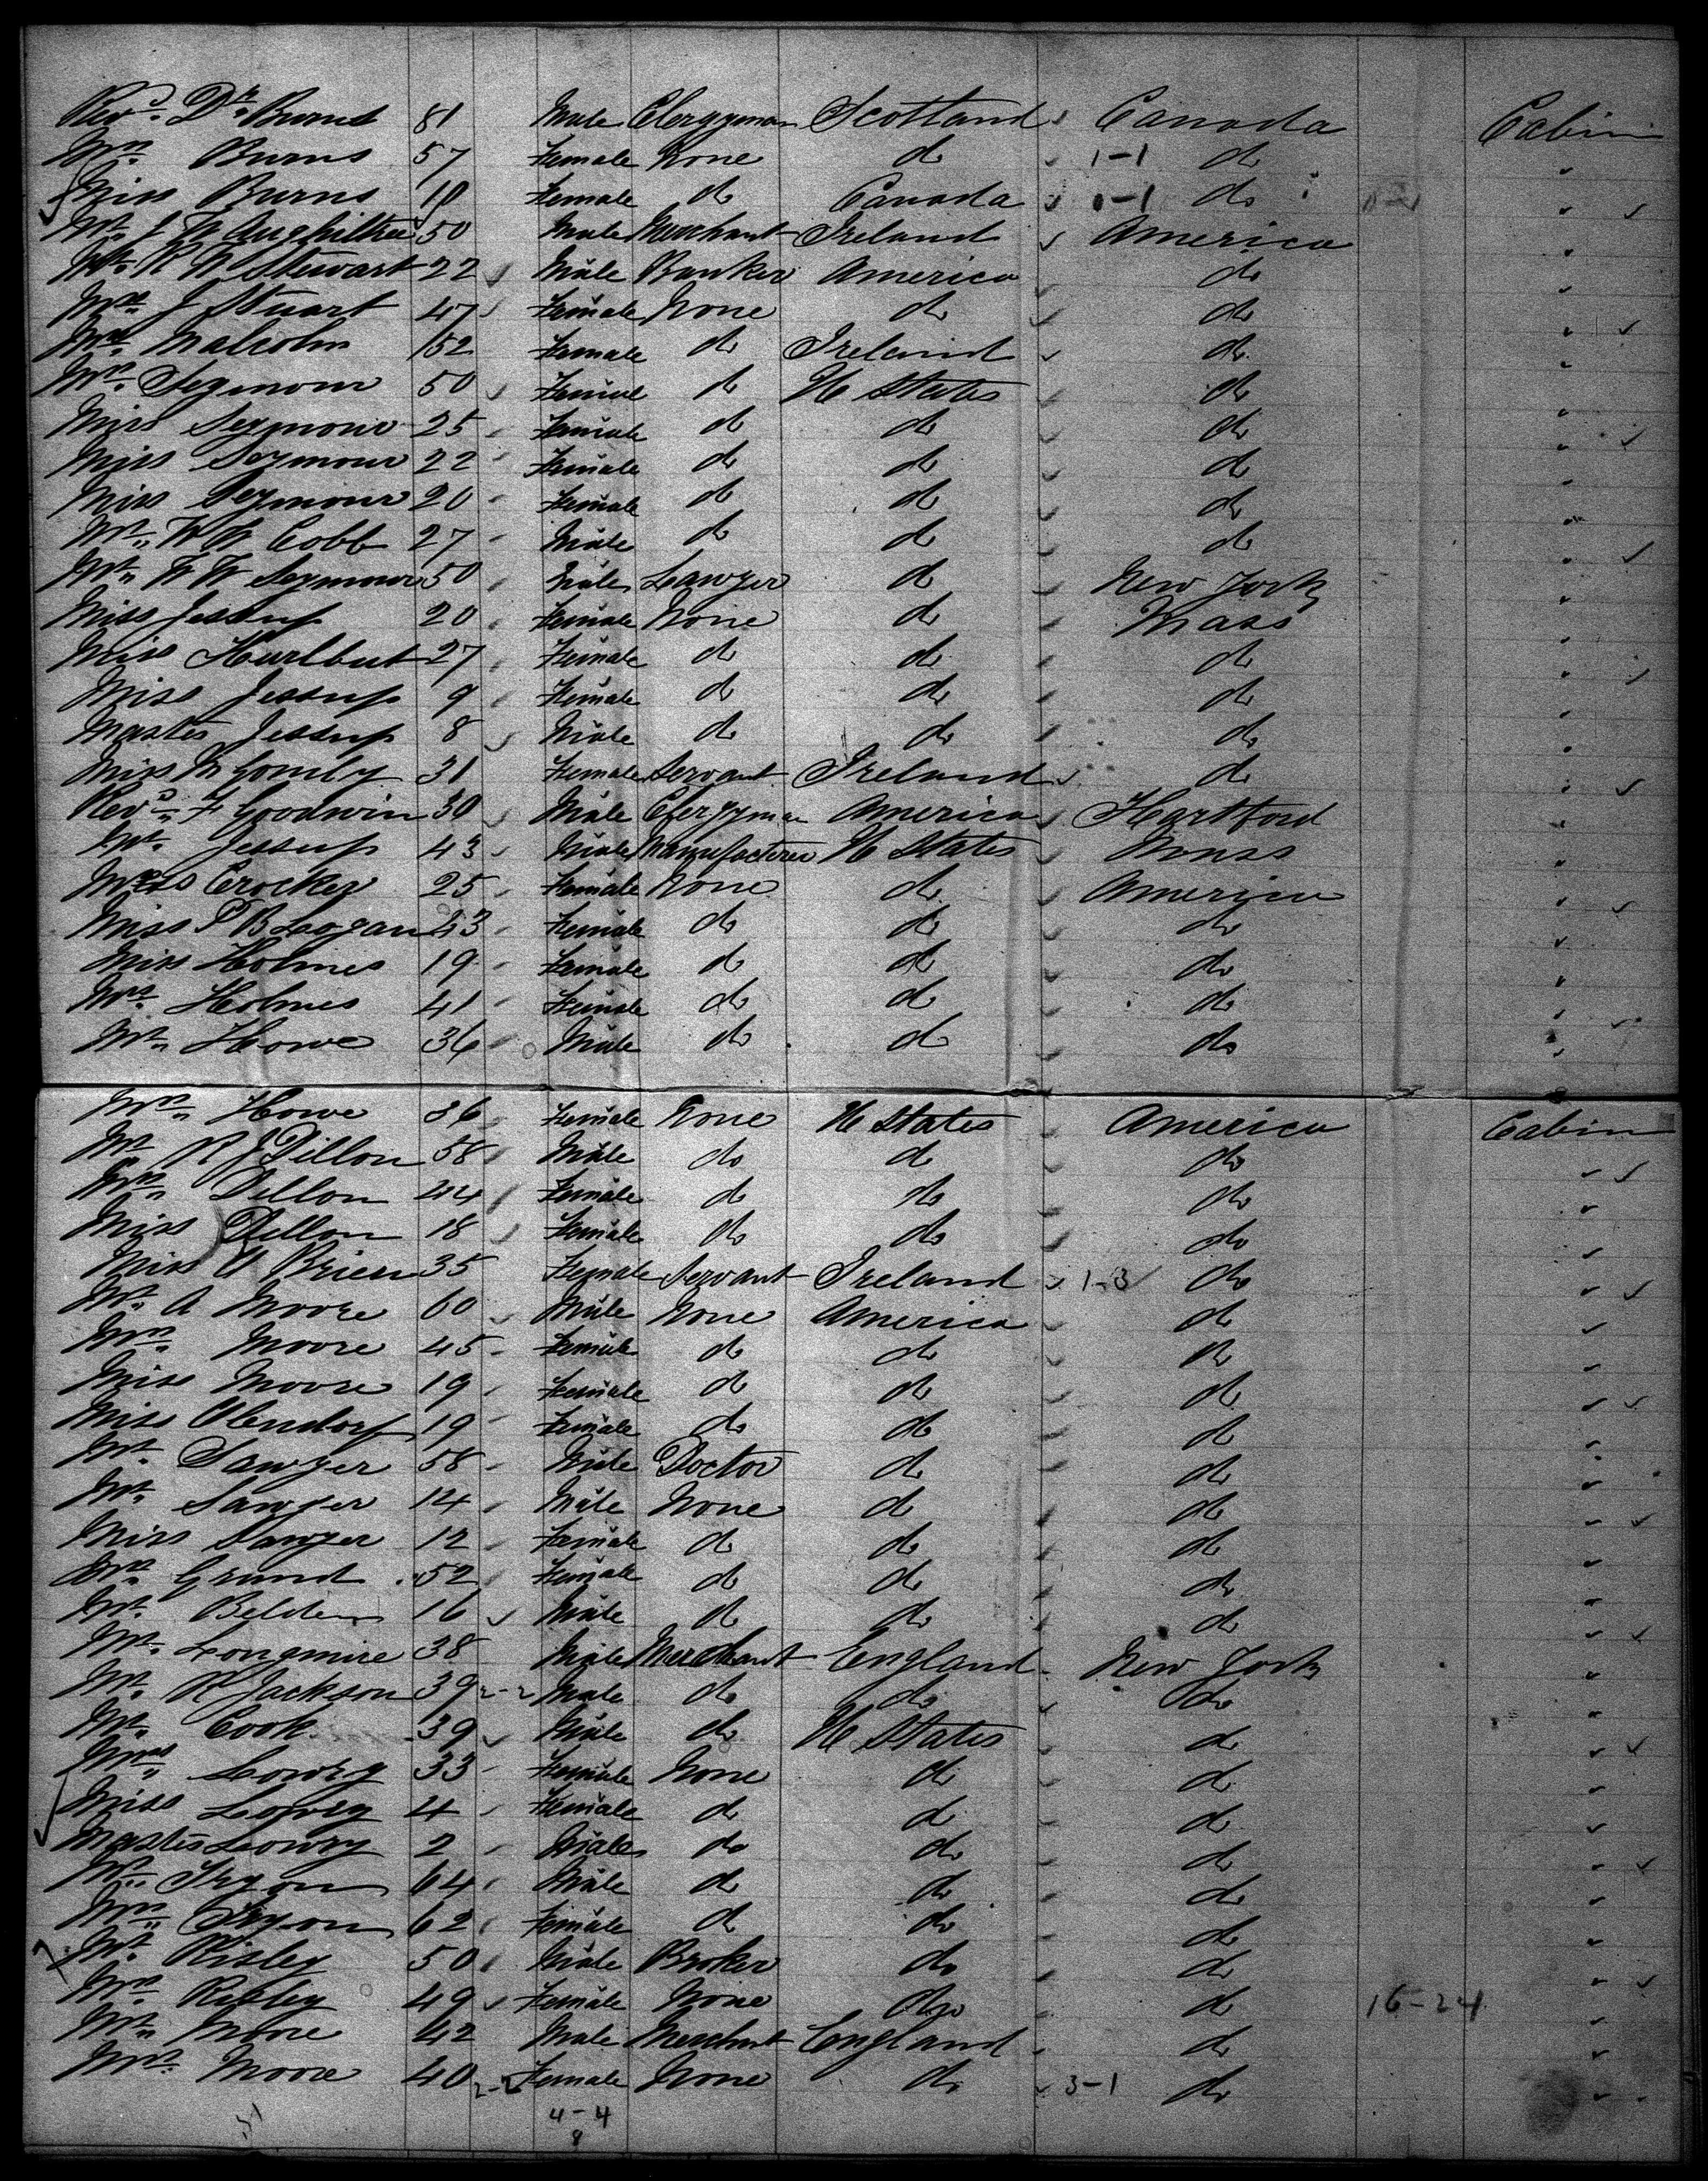 Revd. Dr. Burns 81 Male Clergyman Scotland Canada Cabin
Mrs. Burns 57 Female None d 1-1 do
Miss Burns 18 Female do Canada 1-1 do
Mr. J W 50 Male Merchant Ireland America
Mr. R W Stewart 22 Male Banker America do
Mrs. J Stuart 47 Female None do do
Mrs. Malcolm 52 Female do Ireland do
Mrs. Seymour 50 Female do U States do
Miss Seymour 25 Female do do do
Miss Seymour 22 Female do do do
Miss Seymour 20 Female do do do
Mr. W W Cobb 27 Male do do do
Mr. W W Seymour 50 Male Lawyer do New York
Miss Jessup 20 Female None do Mass
Miss Hurlbut 27 Female do do do
Miss Jessup 9 Female do do do
Master Jessup 8 Male do do do
Miss 31 Female Servant Ireland do
Revd. F Goodwin 30 Male Clergyman America Hartford
Mr. Jessup 43 Male Manufacturer U States Mass
Crocker 25 Female None do America
Miss P B Logan 23 Female do do do
Miss Holmes 19 Female do do do
Mrs. Holmes 41 Female do do do
Mr. Howe 36 Male do do do
Mrs. Howe 36 Female None U States America Cabin
Mr. R J Dillon 58 Male do do do
Mrs. Dillon 44 Female do do do
Miss Dillon 18 Female do do do
Miss O Brien 35 Female Servant Ireland 1-3 do
Mr. A Moore 60 Male None America do
Mrs. Moore 45 Female do do do
Miss Moore 19 Female do do do
Miss Olendorf 19 Female do do do
Mr. Sawyer 58 Male Doctor do do
Mr. Sawyer 14 Male None do do
Miss Sawyer 12 Female do do do
Mrs. Grund 52 Female do do do
Mr. Belden 16 Male do do do
Mr. Longmire 38 Male Merchant England New York
Mr. R Jackson 39 2-2 Male do do do
Mr. Cook 39 Male do U States do
Mrs. Lowry 33 Female None do do
Miss Lowry 4 Female do do do
Master Lowry 2 Male do do do
Mr. Tryon 64 Male do do do
Mrs. Tryon 62 Female do do do
Mr. Risley 50 Male Broker do do
Mrs. Risley 49 Female None do do 16-24
Mr. Moore 42 Male Merchant England do
Mrs. Moore 40 2-2 Female None do 3-1 do
4-4
8